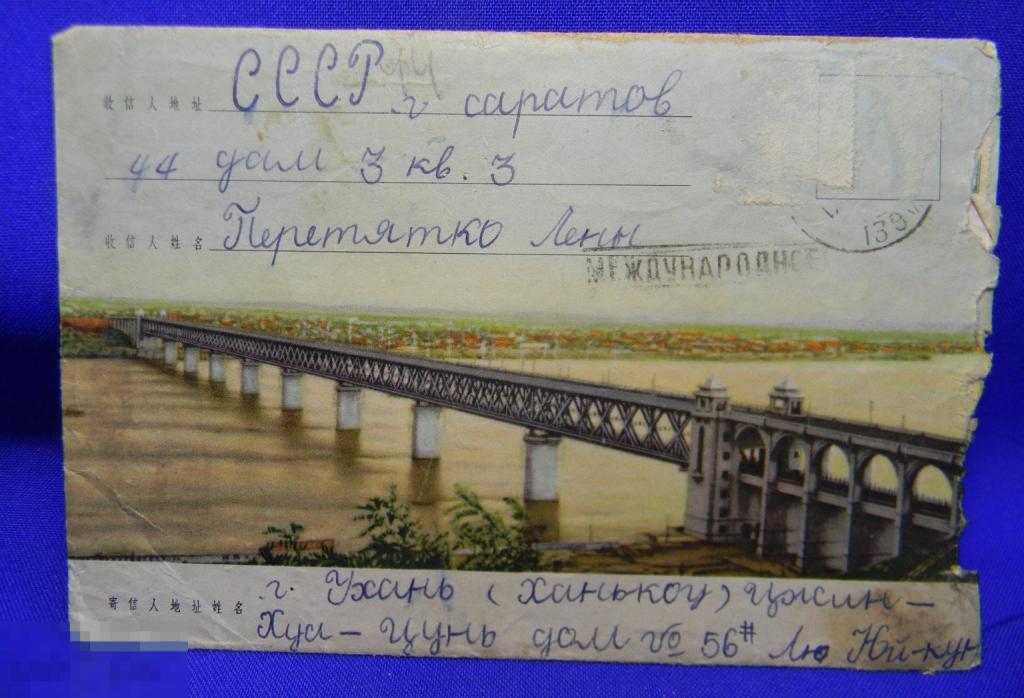 收信人地址 СССР г саратов
44 дом 3 кв. 3
收信人姓名 Перетятко Лени
МЕЖДУНАРОДНОЕ
139
寄信人地址姓名 г. Ухань (Ханькоу) Цжин-
Хуа-Цунь дом № 56# Лю Нй-кун